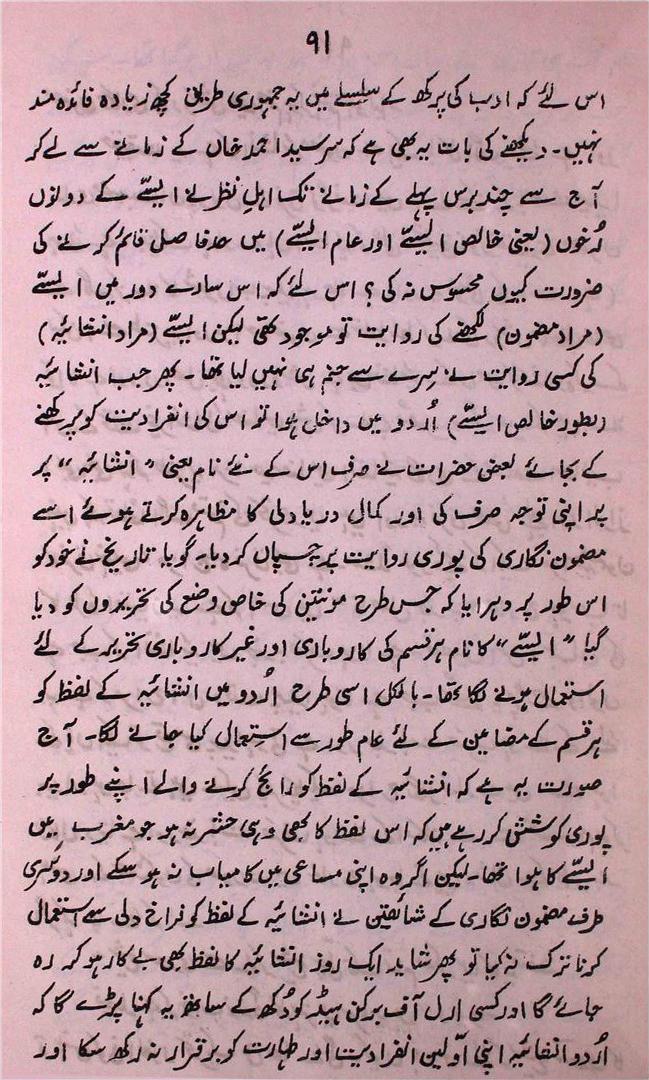 ۹۱
اس لئے کہ ادب کی پرکھ کے سلسلے میں یہ جمہوری طریق کچھ زیادہ فائدہ مند
نہیں۔ دیکھنے کی بات یہ بھی ہے کہ سرسید احمد خاں کے زمانے سے لے کر
آج سے چند برس پہلے کے زمانے تک اہلِ نظر نے ایسّے کے دونوں
رُخوں (یعنی خالص ایسّے اور عام ایسّے) میں حدِفاصل قائم کرنے کی
ضرورت کیوں محسوس نہ کی؟ اس لئے کہ اس سارے دور میں ایسّے
(مراد مضمون) لکھنے کی روایت تو موجود تھی لیکن ایسّے (مراد انشائیہ)
کی کسی روایت نے سِرے سے جنم ہی نہیں لیا تھا۔ پھر جب انشائیہ
(بطور خالص ایسّے) اُردو میں داخل ہوا تو اس کی انفرادیت کو پرکھنے
کے بجائے بعض حضرات نے صرف اس کے نئے نام یعنی "انشائیہ" پر
پر اپنی توجہ صرف کی اور کمال دریا دلی کا مظاہرہ کرتے ہوئے اسے
مضمون نگاری کی پوری روایت پر چسپاں کر دیا۔ گویا تاریخ نے خود کو
اس طور پر دہرایا کہ جس طرح مونتین کی خاص وضع کی تحریروں کو دیا
گیا "ایسّے" کا نام ہر قسم کی کاروباری اور غیر کاروباری تحریر کے لئے
استعمال ہونے لگا تھا۔ بالکل اسی طرح اُردو میں انشائیہ کے لفظ کو
ہر قسم کے مضامین کے لئے عام طور سے استعمال کیا جانے لگا۔ آج
صورت یہ ہے کہ انشائیہ کے لفظ کو رائج کرنے والے اپنے طور پر
پوری کوشش کر رہے ہیں کہ اس لفظ کا بھی وہی حشر نہ ہو جو مغرب میں
ایسّے کا ہوا تھا۔ لیکن اگر وہ اپنی مساعی میں کامیاب نہ ہو سکے اور دوسری
طرف مضمون نگاری کے شائقین نے انشائیہ کے لفظ کو فراخ دلی سے استعمال
کرنا ترک نہ کیا تو پھر شاید ایک روز انشائیہ کا لفظ بھی بے کار ہو کر رہ
جائے گا اور کسی ارل آف برکن ہیڈ کو دُکھ کے ساتھ یہ کہنا پڑے گا کہ
اُردو انشائیہ اپنی اوّلین انفرادیت اور طہارت کو برقرار نہ رکھ سکا اور